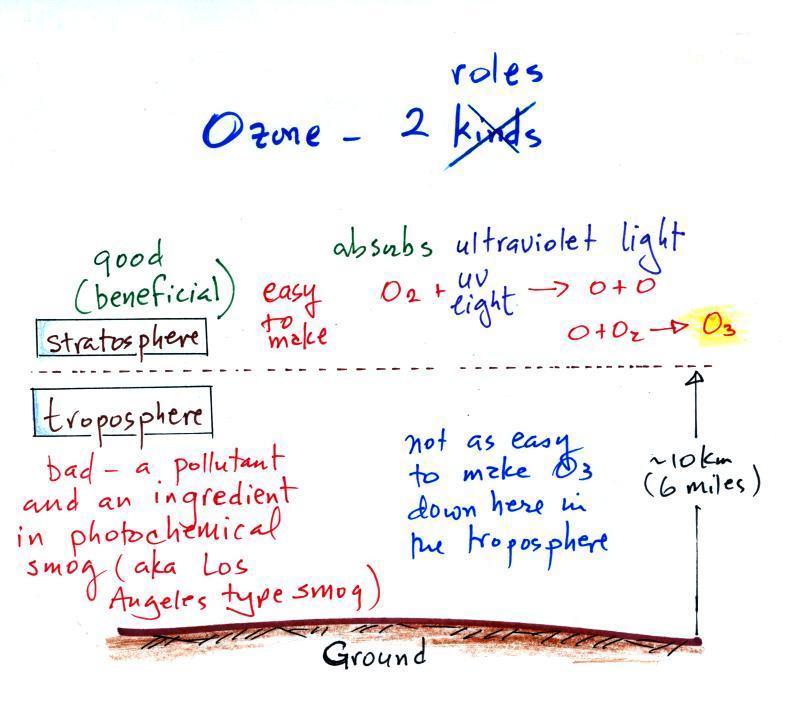 roles
Ozone - 2 kinds
good
(beneficial)
absorbs ultraviolet light
easy
to
make
O2 + UV light → O + O
O + O2 → O3
stratosphere
troposphere
bad - a pollutant
and an ingredient
in photochemical
smog (aka Los
Angeles type smog)
not as easy
to make O3
down here in
the troposphere
~10 km
(6 miles)
Ground